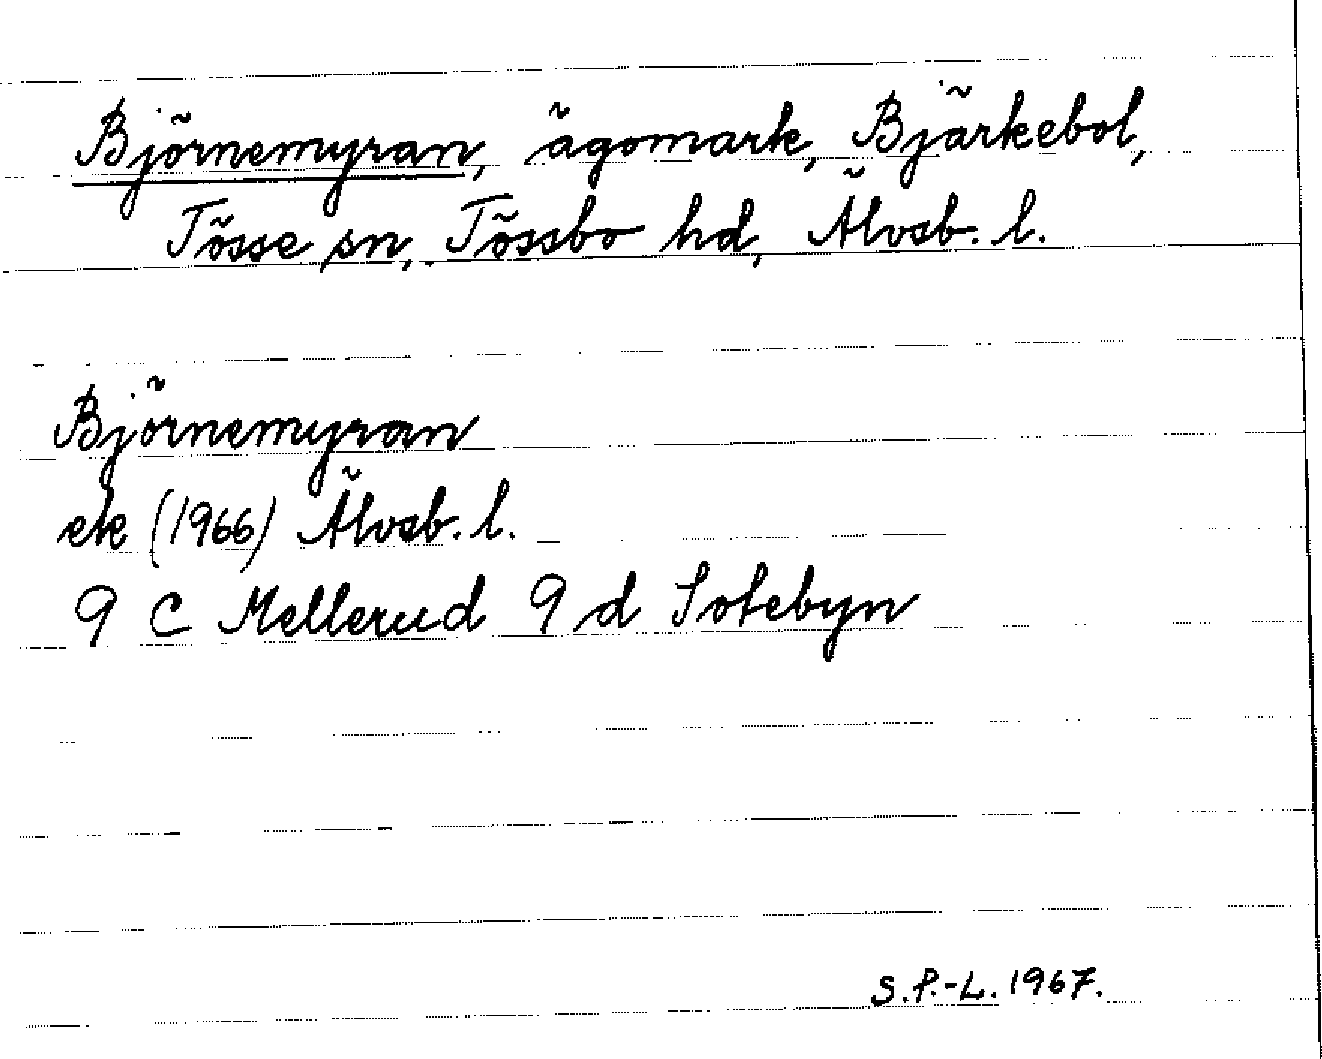 Björnemyran, ägomark, Bjärkebol,
Tösse sn, Tössbo hd, Älvsb. l.
Björnemyran
ek (1966) Älvsb. l.
9 C Mellerud 9 d Sotebyn
S.P.-L. 1967.